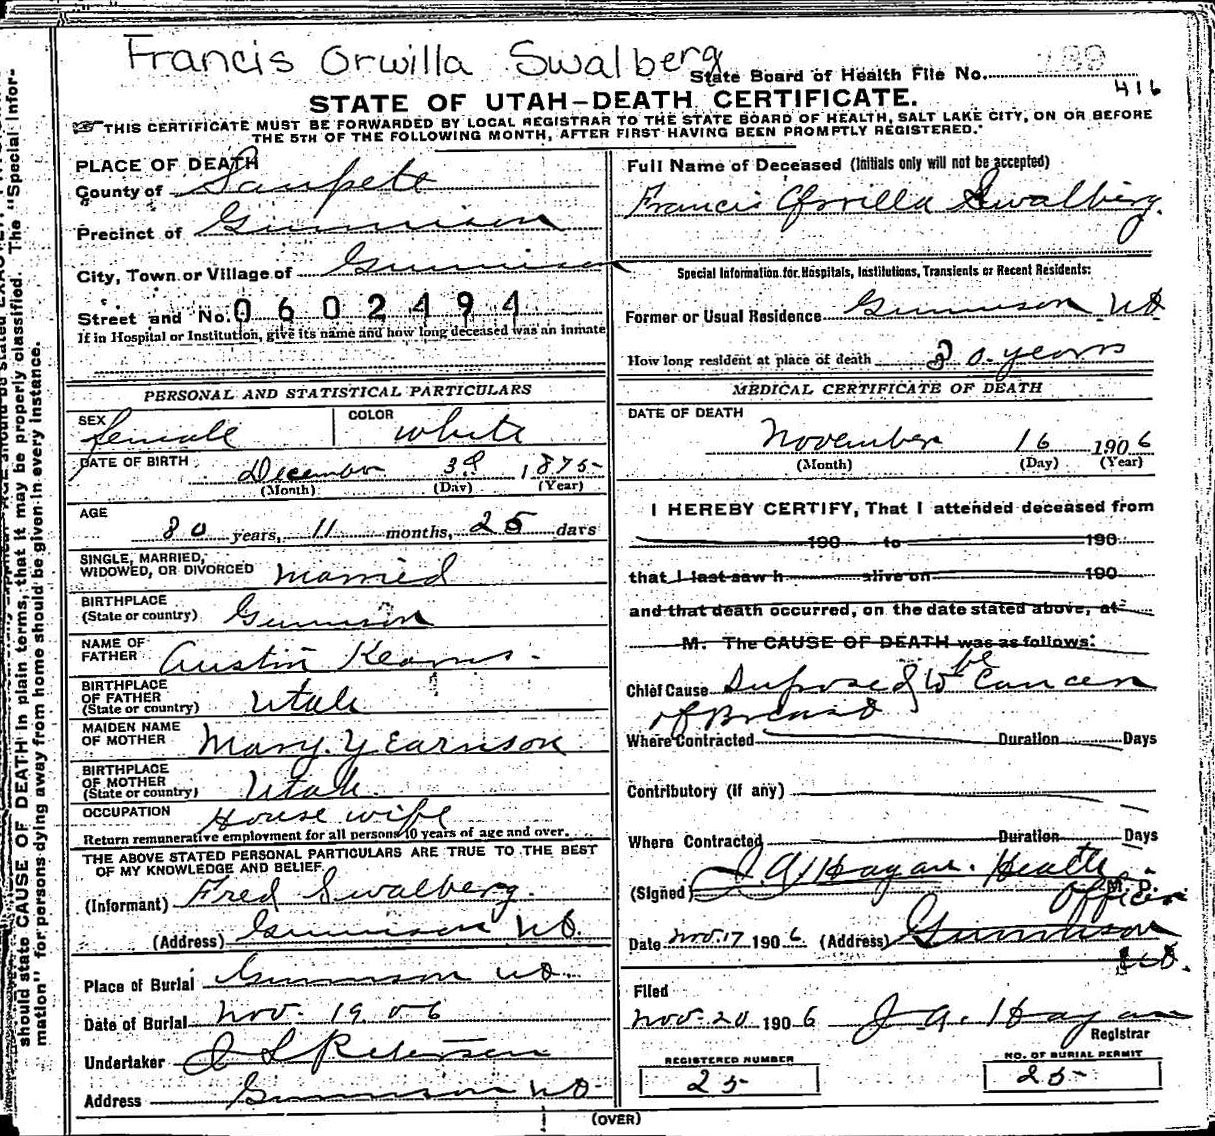 Francis Orwilla Swalberg
State Board of Health File No.
416
STATE OF UTAH—DEATH CERTIFICATE.
THIS CERTIFICATE MUST BE FORWARDED BY LOCAL REGISTRAR TO THE STATE BOARD OF HEALTH, SALT LAKE CITY, ON OR BEFORE
THE 5TH OF THE FOLLOWING MONTH, AFTER FIRST HAVING BEEN PROMPTLY REGISTERED.
PLACE OF DEATH
County of Sanpete
Precinct of Gunnison
City, Town or Village of Gunnison
Street and No. 0602494
If in Hospital or Institution, give its name and how long deceased was an inmate
PERSONAL AND STATISTICAL PARTICULARS
SEX female COLOR white
DATE OF BIRTH December 3d 1875
(Month) (Day) (Year)
AGE
30 years, 11 months, 25 days
SINGLE, MARRIED,
WIDOWED, OR DIVORCED married
BIRTHPLACE
(State or country) Gunnison
NAME OF
FATHER Austin Kearns.
BIRTHPLACE
OF FATHER
(State or country) Utah
MAIDEN NAME
OF MOTHER Mary
BIRTHPLACE
OF MOTHER
(State or country) Utah
OCCUPATION House wife
Return remunerative employment for all persons 10 years of age and over.
THE ABOVE STATED PERSONAL PARTICULARS ARE TRUE TO THE BEST
OF MY KNOWLEDGE AND BELIEF
(Informant) Fred Swalberg.
(Address) Gunnison Ut.
Place of Burial Gunnison Ut.
Date of Burial Nov. 19 06
Undertaker Petersen
Address Gunnison Ut
Full Name of Deceased (Initials only will not be accepted)
Francis Orvilla Swalberg.
Special Information for Hospitals, Institutions, Transients or Recent Residents:
Former or Usual Residence Gunnison Ut
How long resident at place of death 30. years
MEDICAL CERTIFICATE OF DEATH
DATE OF DEATH
November 16 1906
(Month) (Day) (Year)
I HEREBY CERTIFY, That I attended deceased from
190 to 190
that I last saw h alive on 190
and that death occurred, on the date stated above, at
M. The CAUSE OF DEATH was as follows:
Chief Cause Suposed to be Cancer
of Breast
Where Contracted Duration Days
Contributory (if any)
Where Contracted Duration Days
(Signed) J. A. Hagan. Health
Officer M. D.
Date Nov. 17 1906 (Address) Gunnison
Ut.
Filed
Nov. 20 1906 J. A. Hagan
Registrar
REGISTERED NUMBER
25
NO. OF BURIAL PERMIT
25
(OVER)
should state CAUSE OF DEATH in plain terms, that it may be properly classified. The "Special Infor-
mation" for persons dying away from home should be given in every instance.